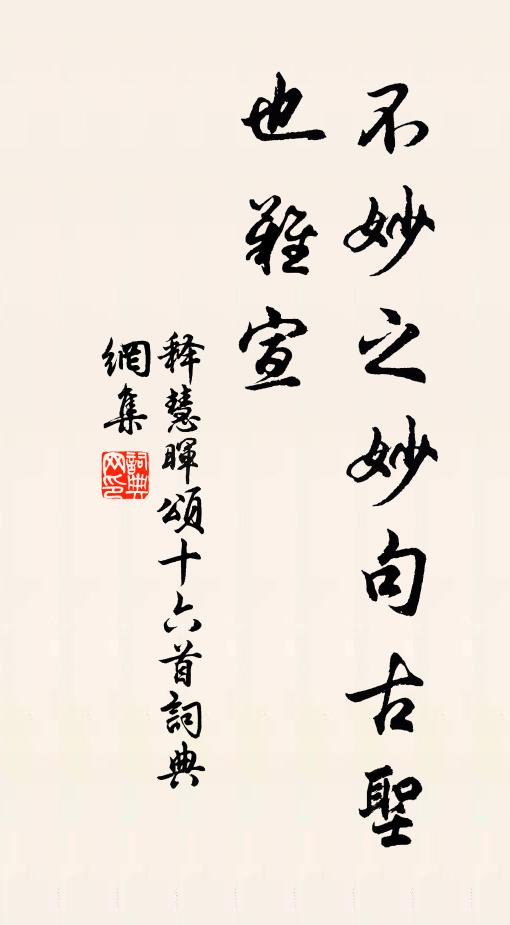 不妙之妙句古聖
也難宣
释慧暉頌十六首詞典
網集
詞典
网印